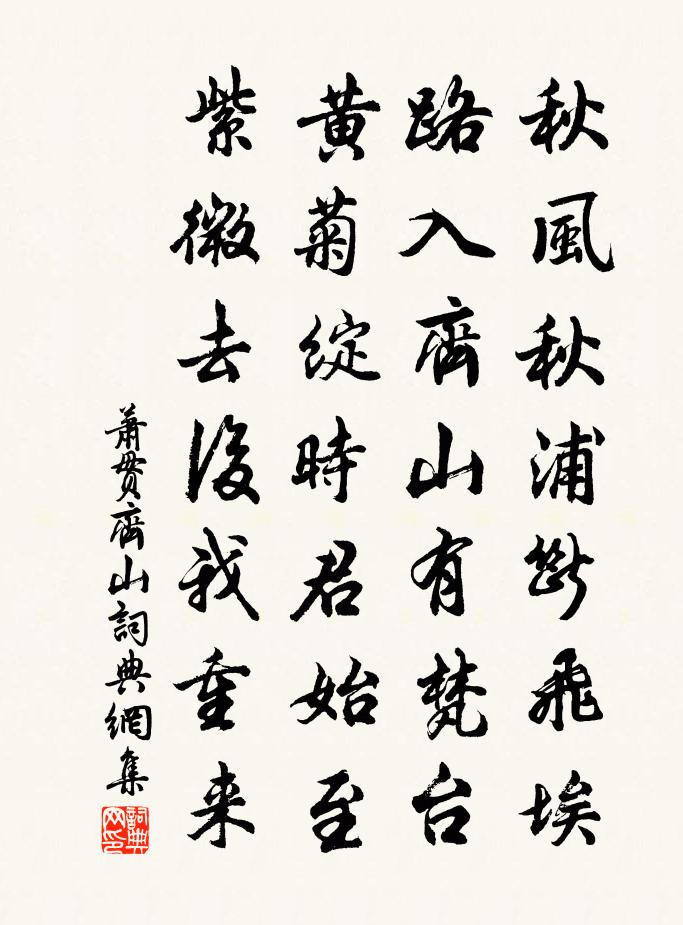 秋風秋浦斷飛埃
路入齊山有梵台
黃菊綻時君始至
紫微去後我重来
蕭貫齊山詞典網集
詞典网印